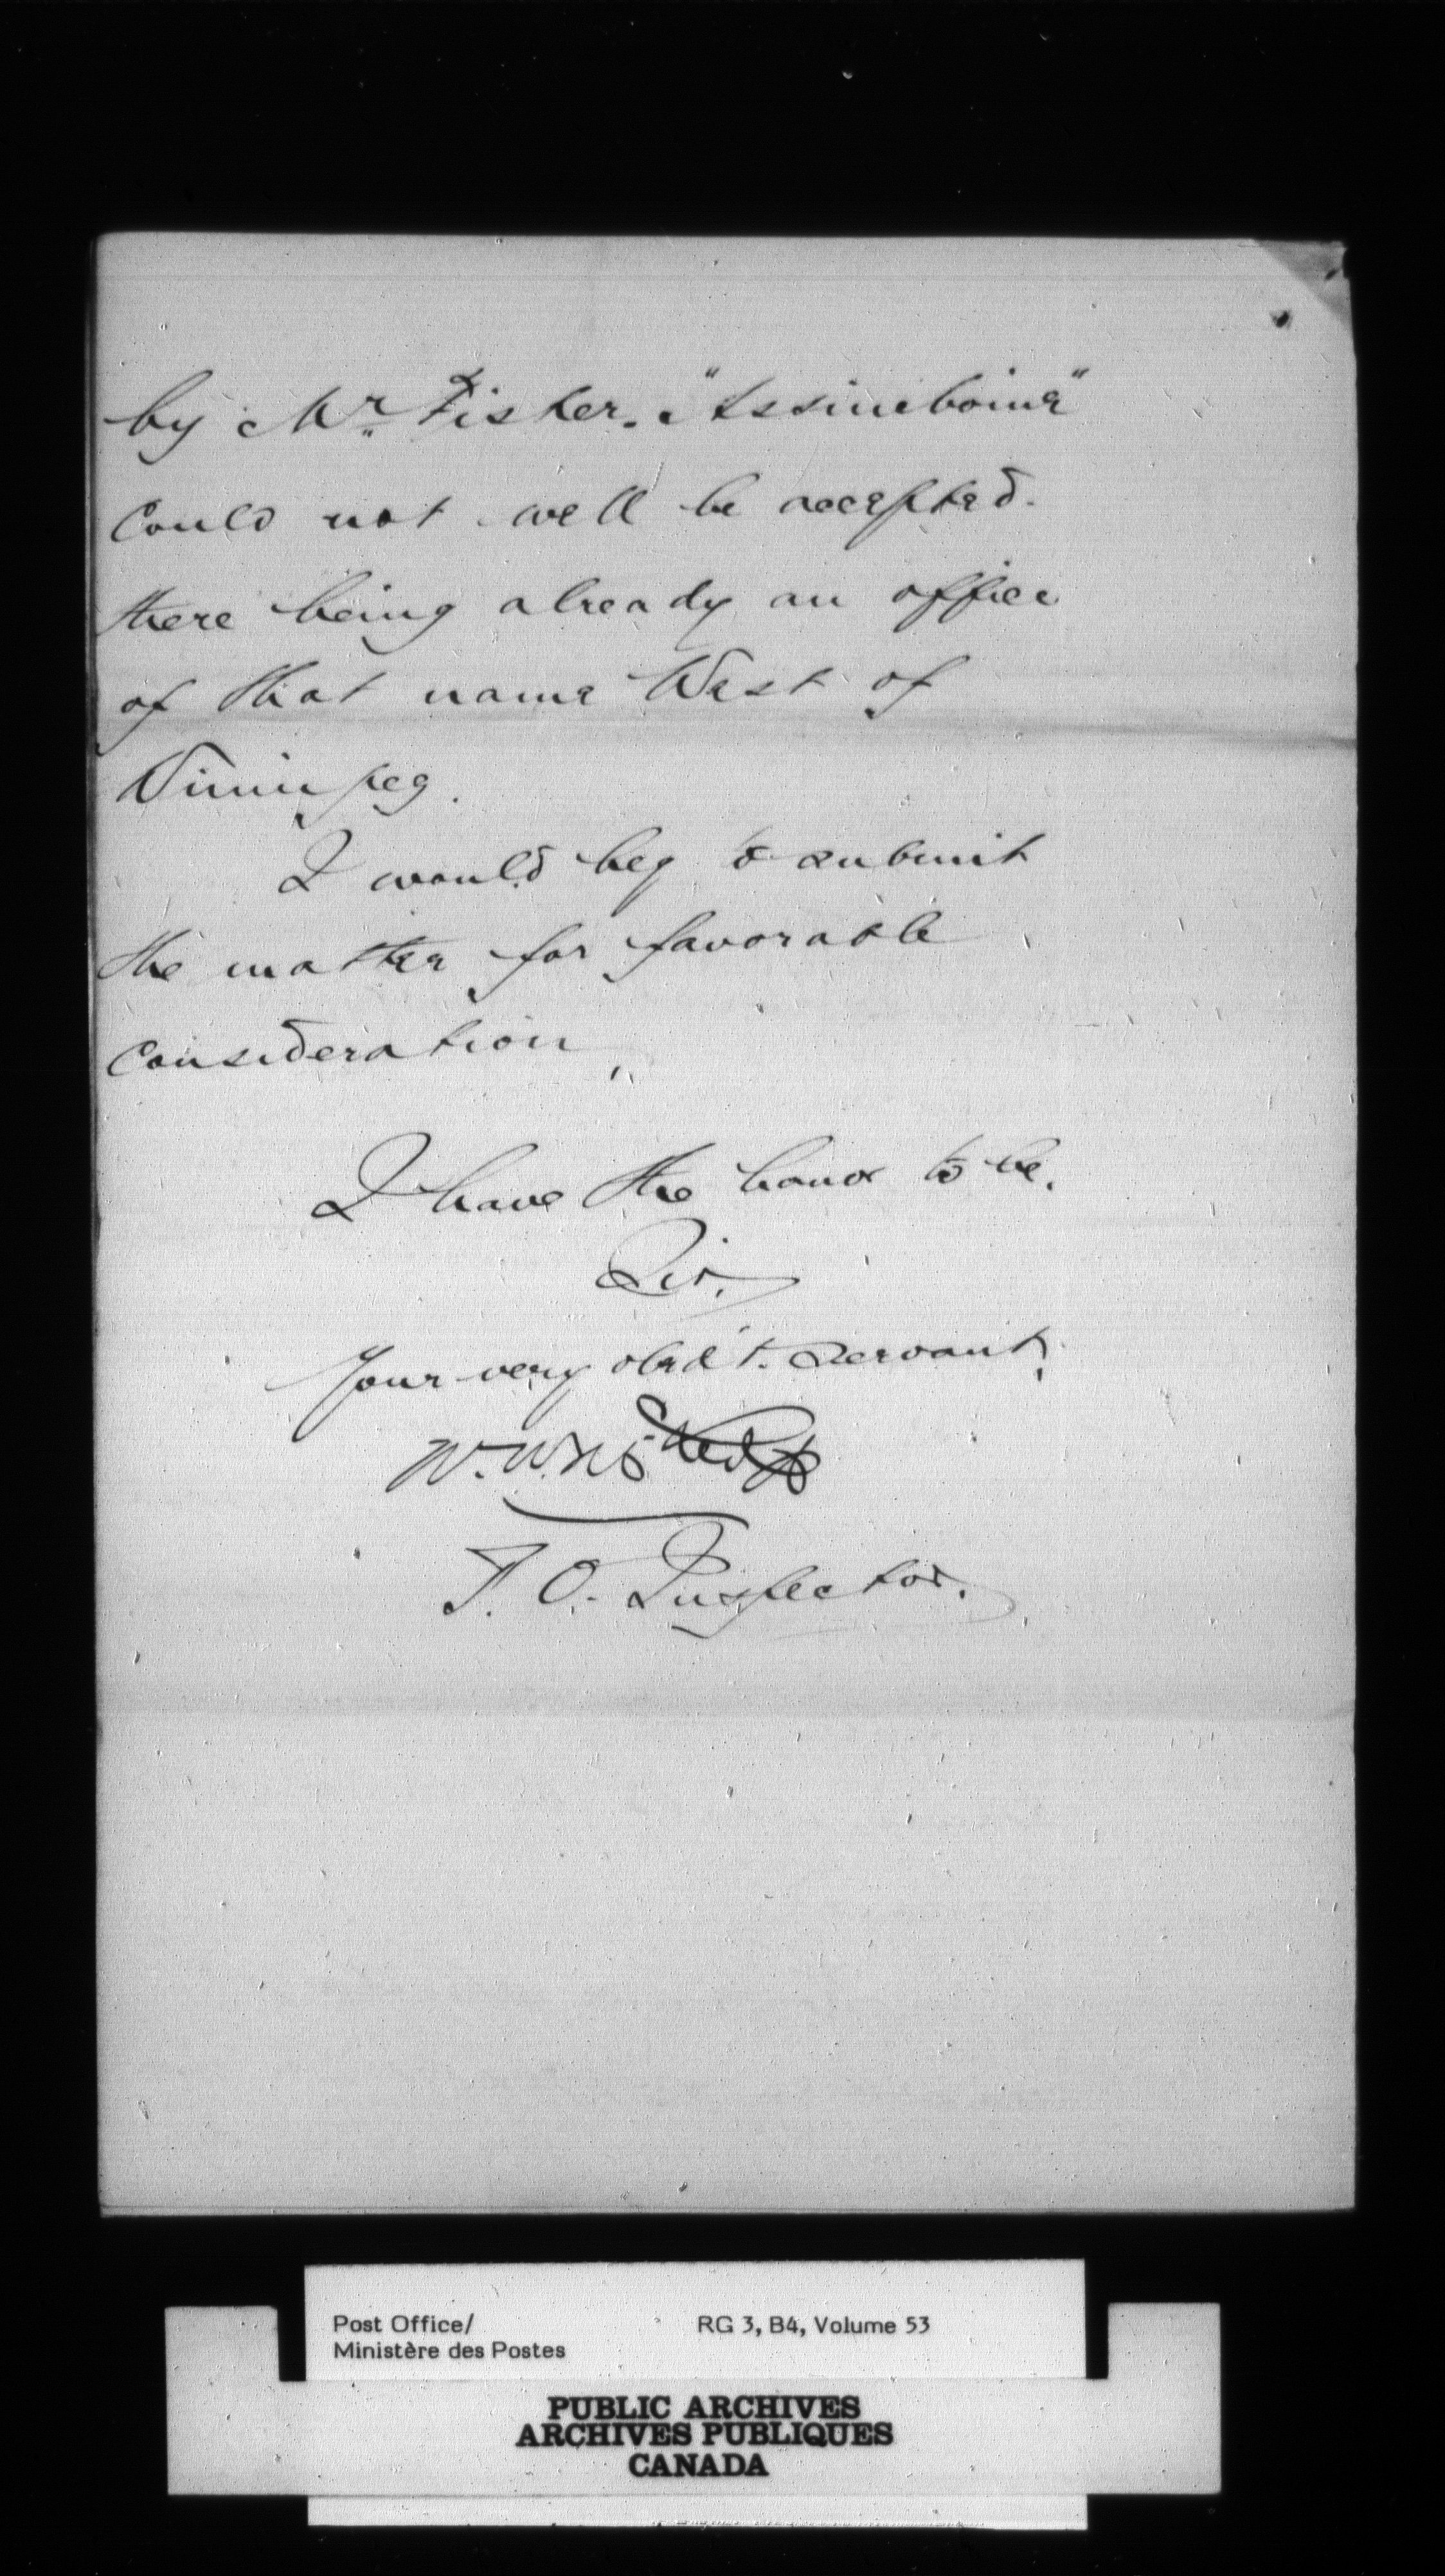 by Mr. Fisher. "Assineboine"
Could not well be accepted.
there being already an office
of that name West of
Winnipeg.
I would beg to submit
the matter for favorable
Consideration,
I have the honor to be,
Sir,
Your very obed't. Servant,
P. O. Inspector.
Post Office/
Ministère des Postes
RG 3, B4, Volume 53
PUBLIC ARCHIVES
ARCHIVES PUBLIQUES
CANADA